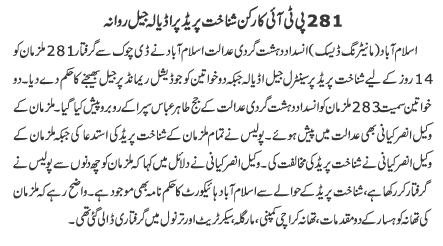 281 پی ٹی آئی کارکن شناخت پریڈ پر اڈیالہ جیل روانہ
اسلام آباد (مانیٹرنگ ڈیسک) انسداد دہشت گردی عدالت اسلام آباد نے ڈی چوک سے گرفتار 281 ملزمان کو
14 روز کے لیے شناخت پریڈ پر سینٹرل جیل اڈیالہ جبکہ دو خواتین کو جوڈیشل ریمانڈ پر جیل بھیجنے کا حکم دے دیا۔ دو
خواتین سمیت 283 ملزمان کو انسداد دہشت گردی عدالت کے جج طاہر عباس سپرا کے روبرو پیش کیا گیا۔ ملزمان کے
وکیل انصر کیانی بھی عدالت میں پیش ہوئے۔ پولیس نے تمام ملزمان کے شناخت پریڈ کی استدعا کی جبکہ ملزمان کے
وکیل انصر کیانی نے شناخت پریڈ کی مخالفت کی۔ وکیل انصر کیانی نے دلائل میں کہا کہ ملزمان کو چھ دنوں سے پولیس نے
گرفتار کر رکھا ہے، شناخت پریڈ کے حوالے سے اسلام آباد ہائیکورٹ کا حکم نامہ بھی موجود ہے۔ واضح رہے کہ ملزمان
کی تھانہ کوہسار کے دو مقدمات، تھانہ کراچی کمپنی، مارگلہ، سیکرٹریٹ اور ترنول میں گرفتاری ڈالی گئی تھی۔